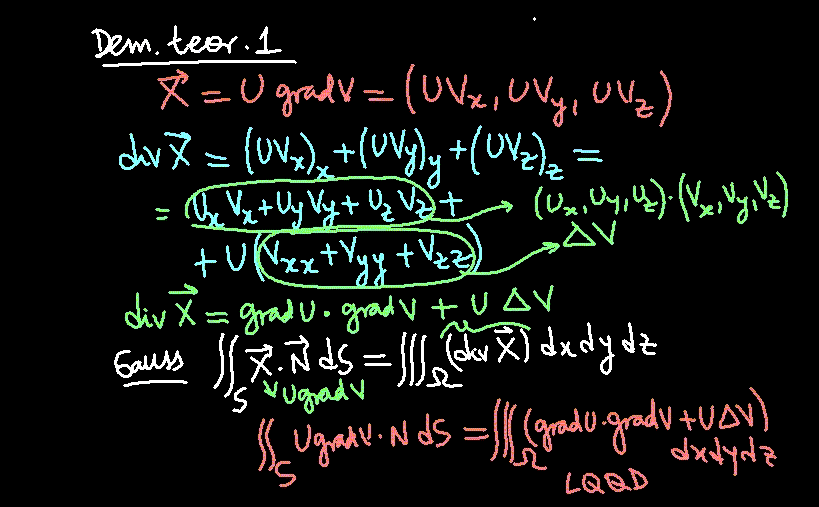 Dem. teor. 1
X⃗ = U gradV = (UVx, UVy, UVz)
div X⃗ = (UVx)x + (UVy)y + (UVz)z =
= UxVx + UyVy + UzVz + → (Ux, Uy, Uz)·(Vx, Vy, Vz)
+ U(Vxx + Vyy + Vzz) → ΔV
div X⃗ = gradU · gradV + U ΔV
Gauss ∬S X⃗·N⃗ dS = ∭Ω (div X⃗) dx dy dz
UgradV
∬S UgradV·N dS = ∭Ω (gradU·gradV + UΔV)
dxdydz
LQQD